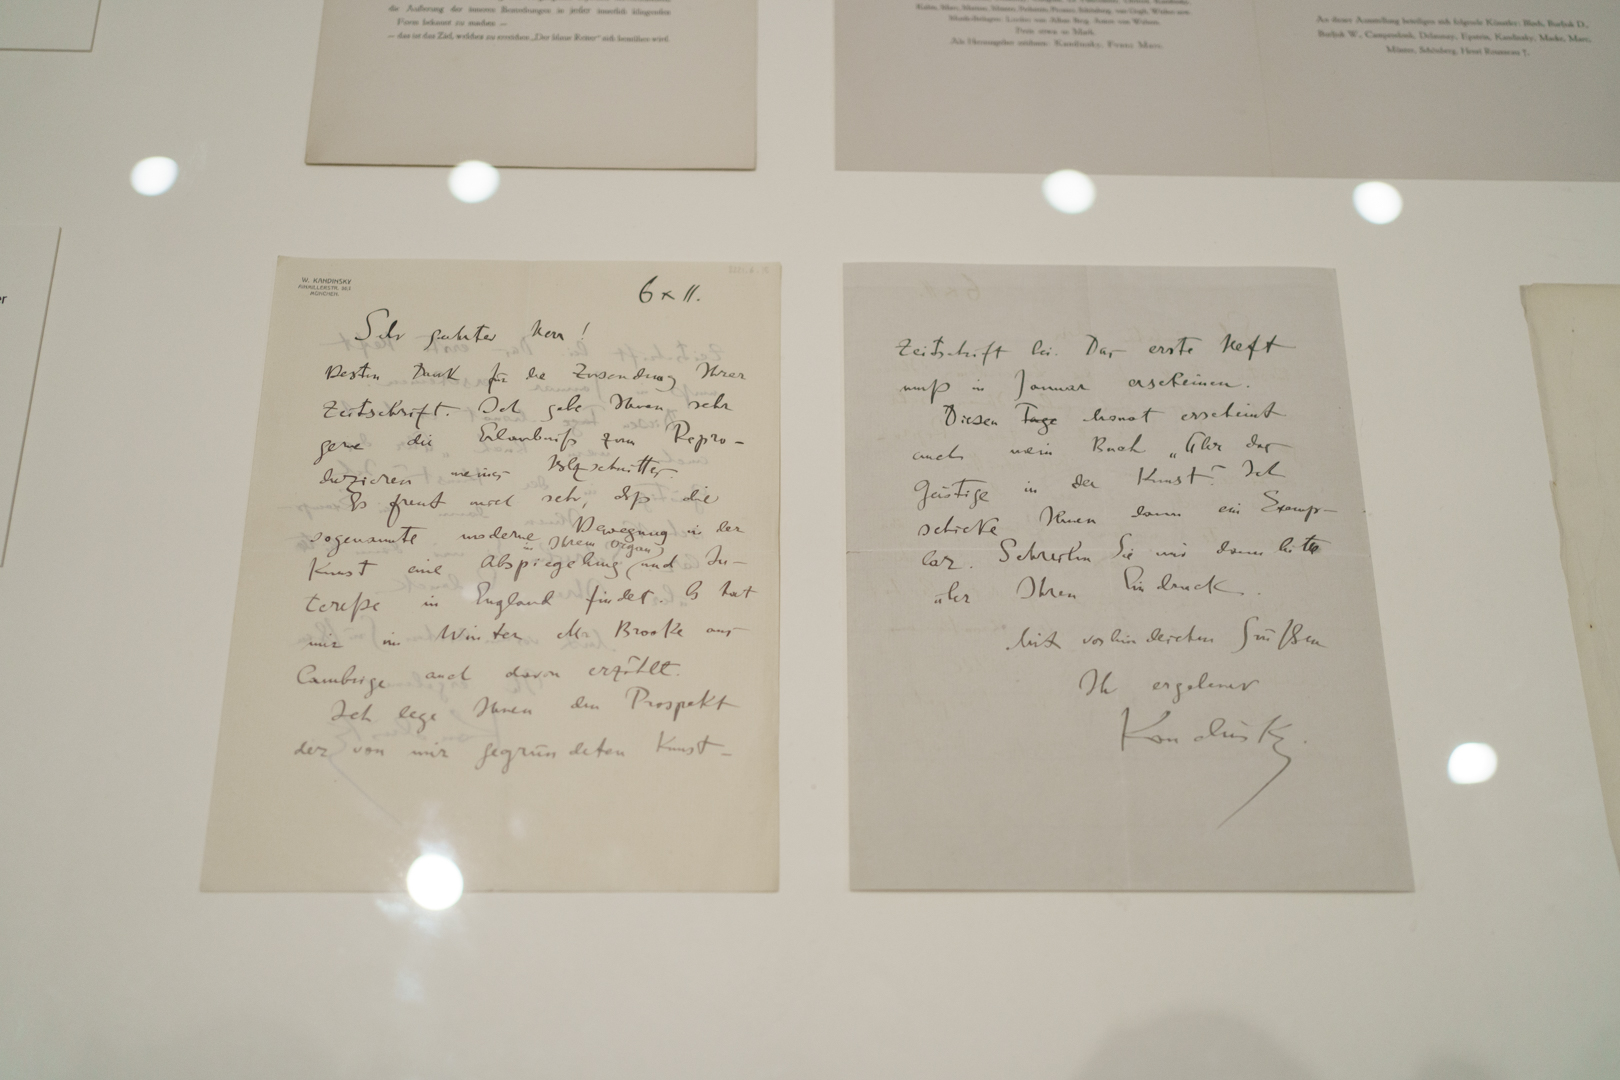 die Äußerung der inneren Bestrebungen in jeder innerlich klingenden
Form bekannt zu machen —
— das ist das Ziel, welches zu erreichen „Der blaue Reiter“ sich bemühen wird.
Musik-Beilagen: Lieder von Alban Berg, Anton von Webern.
Preis etwa 10 Mark.
Als Herausgeber zeichnen: Kandinsky, Franz Marc.
An dieser Ausstellung beteiligen sich folgende Künstler: Bloch, Burljuk D.,
Burljuk W., Campendonk, Delaunay, Epstein, Kandinsky, Macke, Marc,
Münter, Schönberg, Henri Rousseau †.
er
W. KANDINSKY
AINMILLERSTR. 36 I
MÜNCHEN.
6 x 11.
Sehr geehrter Herr!
Besten Dank für die Zusendung Ihrer
Zeitschrift. Ich gebe Ihnen sehr
gerne die Erlaubniß zum Repro-
duzieren meiner Holzschnitte.
Es freut mich sehr, daß die
sogenannte moderne Bewegung in der
Kunst eine Abspiegelung (in Ihrem Organ) und In-
tereße in England findet. Es hat
mir im Winter Mr Brooke aus
Cambrige auch davon erzählt.
Ich lege Ihnen den Prospekt
der von mir gegründeten Kunst-
Zeitschrift bei. Das erste Heft
muß in Januar erscheinen.
Diesen Tage Monat erscheint
auch mein Buch „Über das
Geistige in der Kunst“. Ich
schicke Ihnen dann ein Exemp-
lar. Schreiben Sie mir dann bitte
über Ihren Eindruck.
Mit verbindlichen Grüßen
Ihr ergebener
Kandinsky.